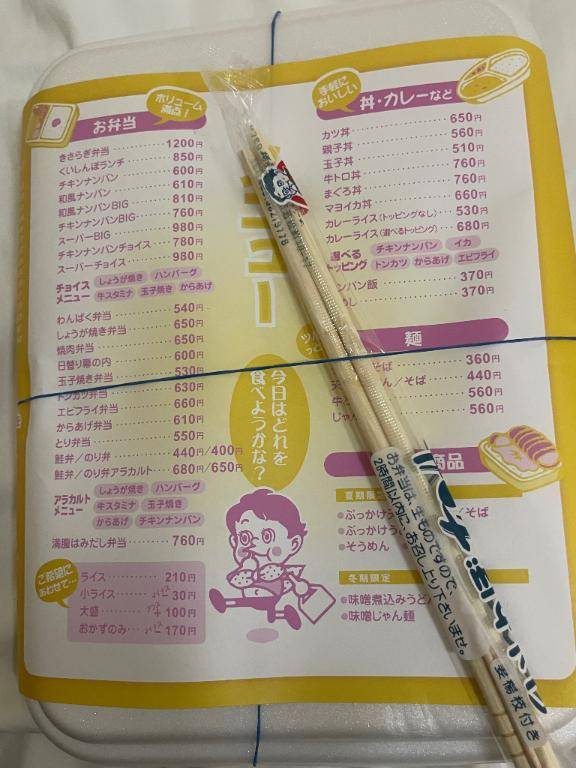 お弁当
ボリューム
満点！
きさらぎ弁当 1200円
くいしんぼランチ 850円
チキンナンバン 600円
和風ナンバン 610円
和風ナンバンBIG 810円
チキンナンバンBIG 760円
スーパーBIG 980円
チキンナンバンチョイス 780円
スーパーチョイス 980円
チョイス
メニュー
しょうが焼き ハンバーグ
牛スタミナ 玉子焼き からあげ
わんぱく弁当 540円
しょうが焼き弁当 650円
焼肉弁当 650円
日替り幕の内 600円
玉子焼き弁当 530円
トンカツ弁当 630円
エビフライ弁当 660円
からあげ弁当 610円
とり弁当 550円
鮭弁／のり弁 440円/400円
鮭弁／のり弁アラカルト 680円/650円
アラカルト
メニュー
しょうが焼き ハンバーグ
牛スタミナ 玉子焼き
からあげ チキンナンバン
満腹はみだし弁当 760円
ご希望に
あわせて…
ライス 210円
小ライス 30円
大盛 100円
おかずのみ 170円
ュー
今日はどれを
食べようかな？
手軽に
おいしい
丼・カレーなど
カツ丼 650円
親子丼 560円
玉子丼 510円
牛トロ丼 760円
まぐろ丼 760円
マヨイカ丼 660円
カレーライス(トッピングなし) 530円
カレーライス(選べるトッピング) 680円
選べる
トッピング
チキンナンバン イカ
トンカツ からあげ エビフライ
ンバン飯 370円
めし 370円
麺
そば 360円
ん／そば 440円
560円
じゃん 560円
商品
夏期限
●ぶっかけ そば
●ぶっかけう
●そうめん
冬期限定
●味噌煮込みうど
●味噌じゃん麺
お弁当は、生ものですので、
2時間以内にお召し上り下さいませ。
楊枝付き